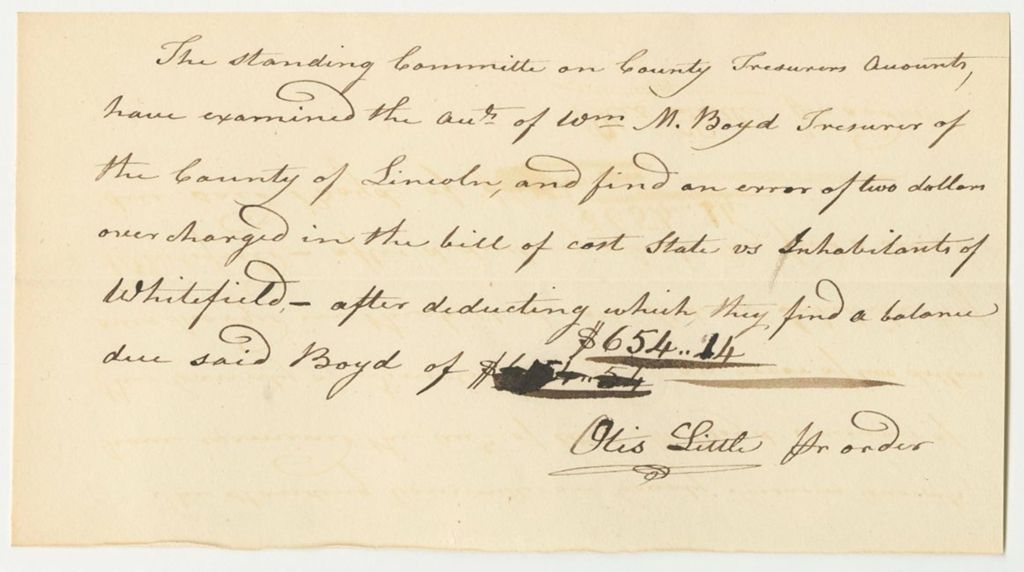 The standing Committe on County Tresurers Accounts,
have examined the acts. of Wm M. Boyd Tresurer of
the County of Lincoln, and find an error of two dollars
overcharged in the bill of cost State vs Inhabitants of
Whitefield,— after deducting which they find a balance
$654..14
due said Boyd of
Otis Little Pr order